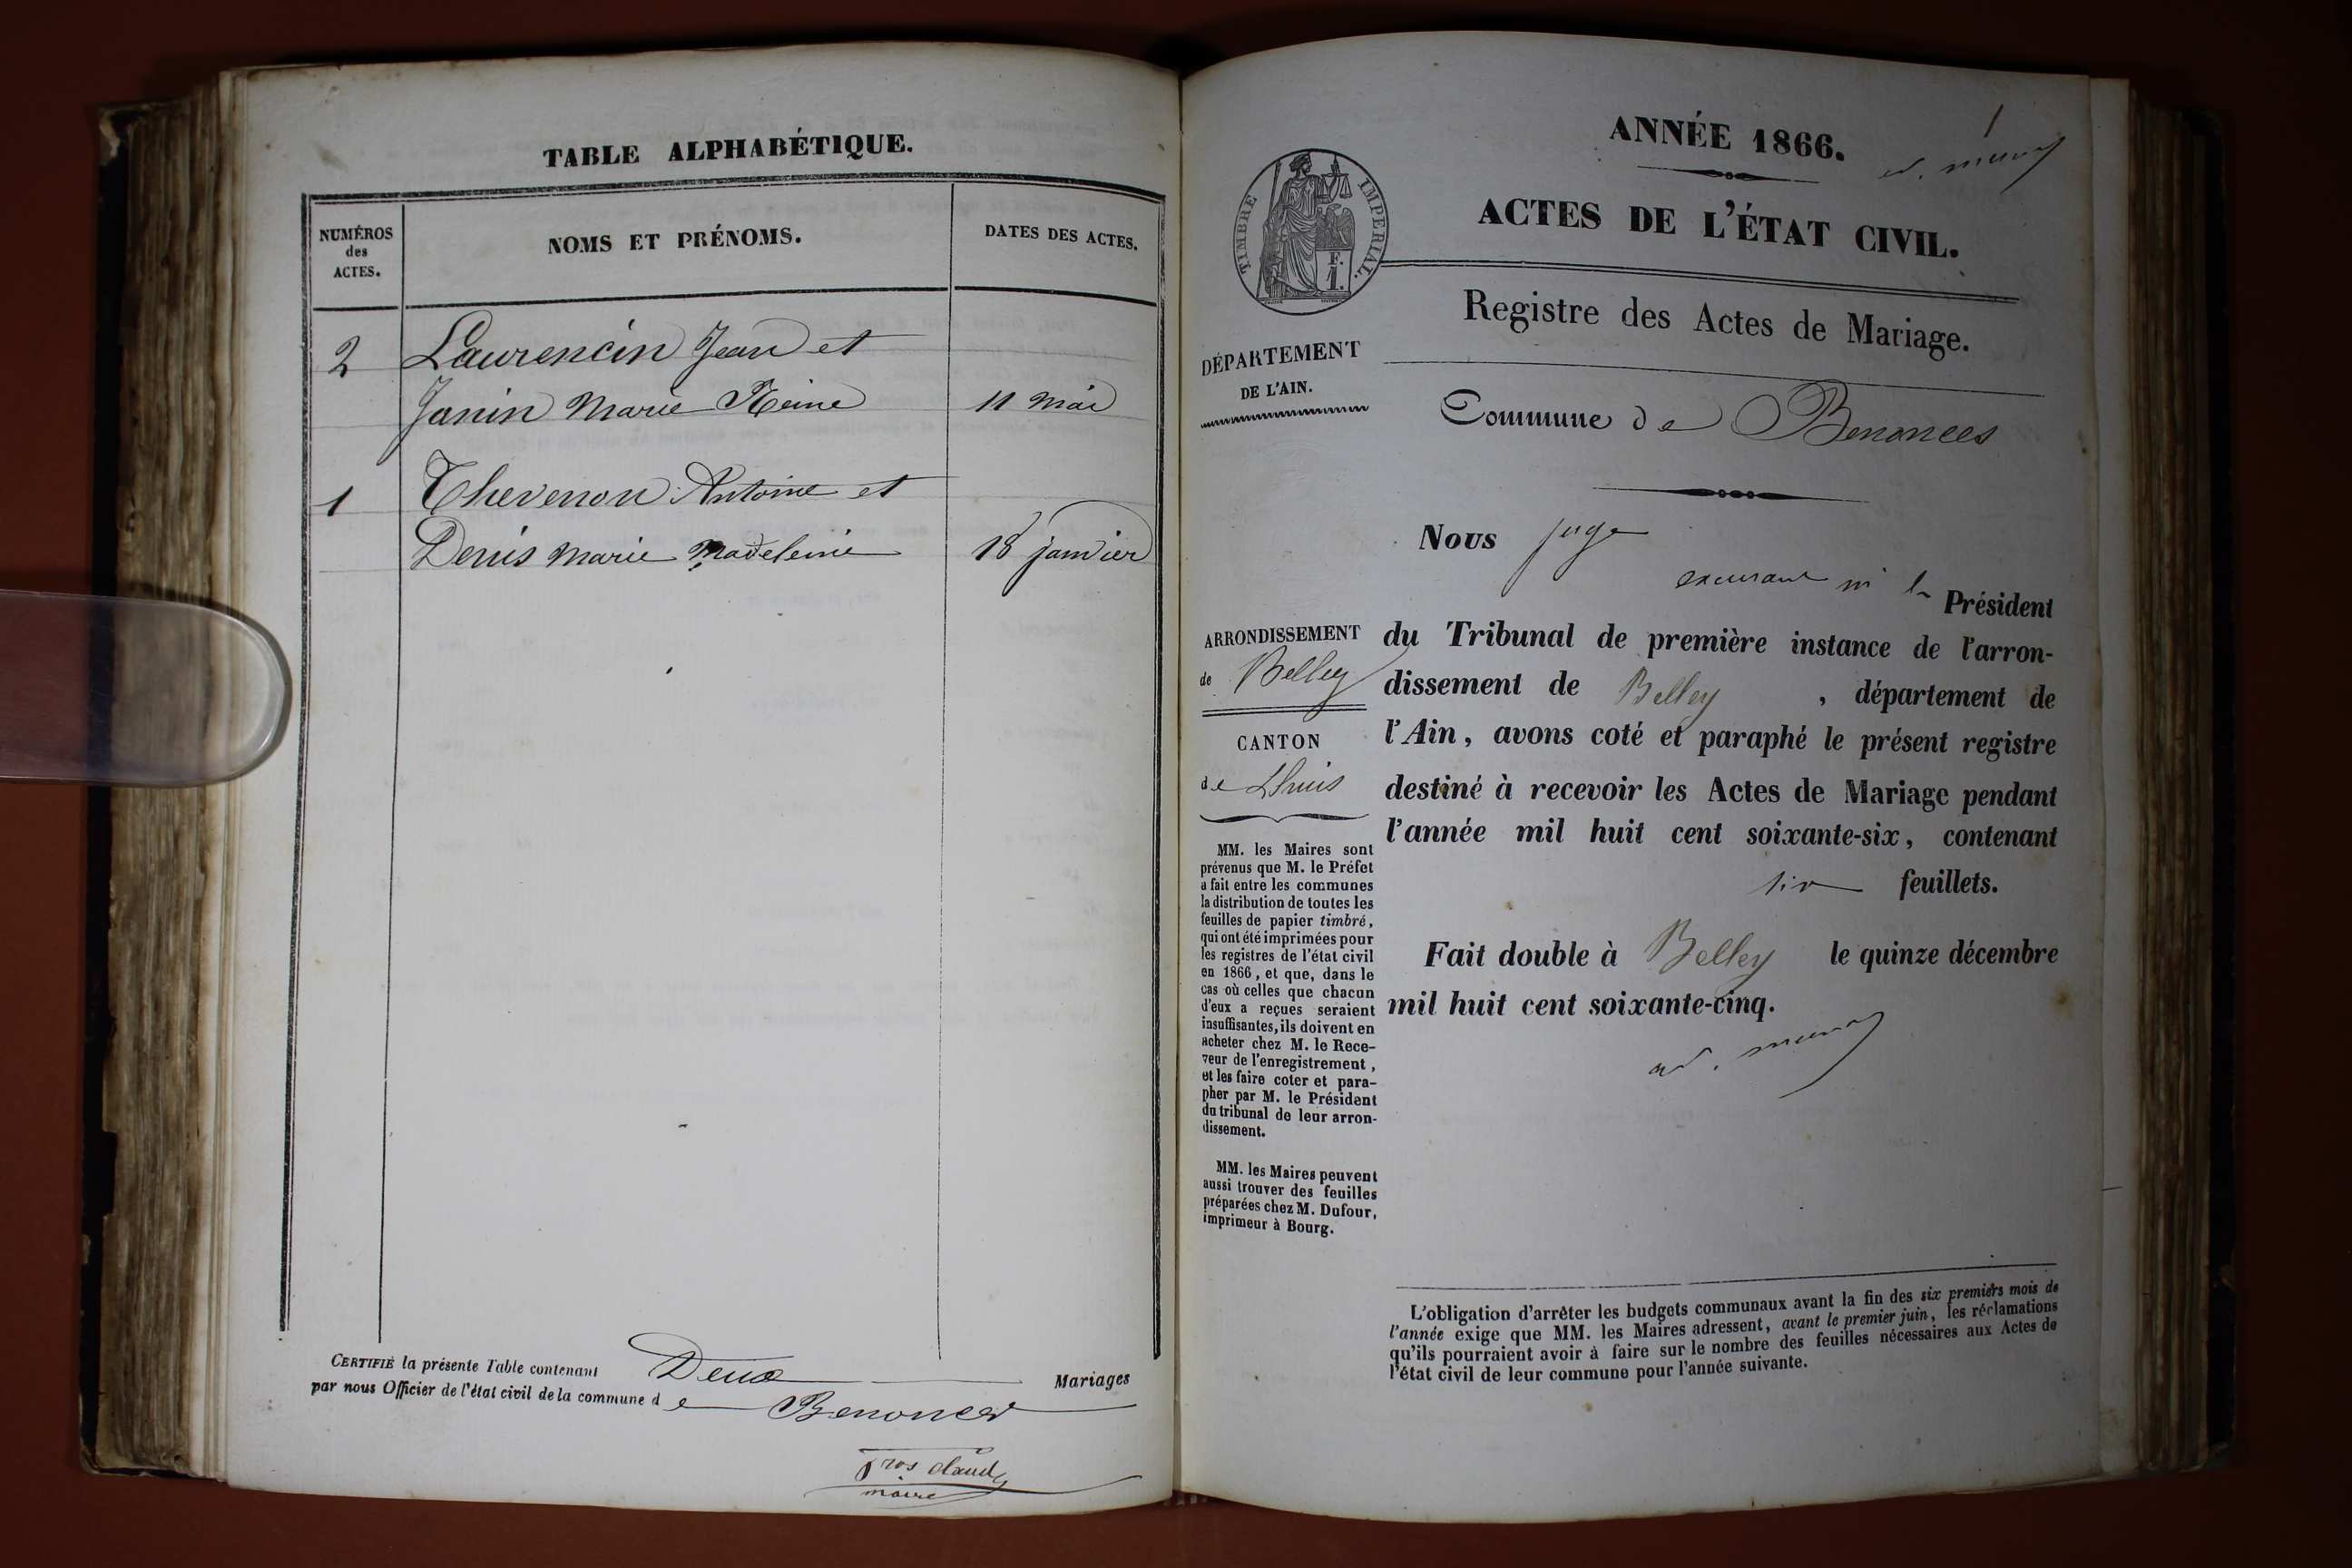 TABLE ALPHABÉTIQUE.
NUMÉROS
des
ACTES.
NOMS ET PRÉNOMS.
DATES DES ACTES.
2 Laurencin Jean et
Janin Marie Reine 11 mai
1 Thevenon Antoine et
Denis Marie Madeleine 18 janvier
CERTIFIÉ la présente Table contenant Deux Mariages
par nous Officier de l'état civil de la commune de Benonces
Gros Claude
maire
1
ANNÉE 1866.
ACTES DE L'ÉTAT CIVIL.
TIMBRE IMPERIAL.
F.
1.
Registre des Actes de Mariage.
DÉPARTEMENT
DE L'AIN.
Commune de Benonces
Nous juge
le Président
ARRONDISSEMENT
de Belley
CANTON
de Lhuis
MM. les Maires sont
prévenus que M. le Préfet
a fait entre les communes
la distribution de toutes les
feuilles de papier timbré,
qui ont été imprimées pour
les registres de l'état civil
en 1866, et que, dans le
cas où celles que chacun
d'eux a reçues seraient
insuffisantes, ils doivent en
acheter chez M. le Rece-
veur de l'enregistrement,
et les faire coter et para-
pher par M. le Président
du tribunal de leur arron-
dissement.
MM. les Maires peuvent
aussi trouver des feuilles
préparées chez M. Dufour,
imprimeur à Bourg.
du Tribunal de première instance de l'arron-
dissement de Belley, département de
l'Ain, avons coté et paraphé le présent registre
destiné à recevoir les Actes de Mariage pendant
l'année mil huit cent soixante-six, contenant
six feuillets.
Fait double à Belley le quinze décembre
mil huit cent soixante-cinq.
L'obligation d'arrêter les budgets communaux avant la fin des six premiers mois de
l'année exige que MM. les Maires adressent, avant le premier juin, les réclamations
qu'ils pourraient avoir à faire sur le nombre des feuilles nécessaires aux Actes de
l'état civil de leur commune pour l'année suivante.